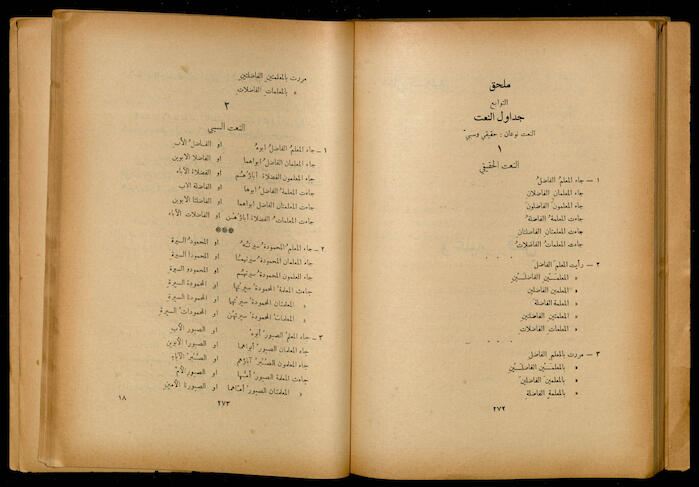 ملحق
التوابع
جداول النعت
النعت نوعان : حقيقي وسببي
١
النعت الحقيقي
١ — جاء المعلمُ الفاضلُ
جاء المعلمان الفاضلان
جاء المعلمون الفاضلون
جاءت المعلمةُ الفاضلةُ
جاءت المعلمتان الفاضلتان
جاءت المعلماتُ الفاضلاتُ
. . . .
٢ — رأيت المعلمَ الفاضلَ
» المعلمَـيْن الفاضلَـيْن
» المعلمين الفاضلين
» المعلمة الفاضلة
» المعلمتين الفاضلتين
» المعلمات الفاضلات
. . . .
٣ — مررت بالمعلمِ الفاضلِ
» بالمعلمَـيْن الفاضلَـيْن
» بالمعلمين الفاضلين
» بالمعلمةِ الفاضلةِ
٢٧٢
مررت بالمعلمتين الفاضلتين
» بالمعلمات الفاضلات
٢
النعت السببي
١ — جاء المعلمُ الفاضلُ ابوهُ او الفاضلُ الأبِ
جاء المعلمان الفاضلُ ابواهما او الفاضلا الابوين
جاء المعلمون الفضلاءُ آباؤهُم او الفضلاءُ الآباء
جاءت المعلمةُ الفاضلُ ابوها او الفاضلة الاب
جاءت المعلمتان الفاضل ابواهما او الفاضلتا الابوين
جاءت المعلماتُ الفضلاءُ آباؤهُن او الفاضلات الآباء
***
٢ — جاء المعلمُ المحمودةُ سيرتُه او المحمودُ السيرة
جاء المعلمان المحمودةُ سيرتهما او المحمودا السيرة
جاء المعلمون المحمودةُ سيرتهم او المحمودو السيرة
جاءت المعلمة المحمودةُ سيرتها او المحمودة السيرة
» المعلمتان المحمودةُ سيرتهما او المحمودتا السيرة
» المعلماتُ المحمودةُ سيرتهن او المحمودات السيرة
٣ — جاء المعلمُ الصبورُ ابوهُ او الصبور الأب
جاء المعلمان الصبورُ ابواهما او الصبورا الأبوين
جاء المعلمون الصُبُر آباؤهم او الصُبُر الآباءِ
جاءت المعلمة الصبورُ أمُّها او الصبور الأمِّ
» المعلمتان الصبورُ أمّاهما او الصبورتا الأمين
٢٧٣
١٨